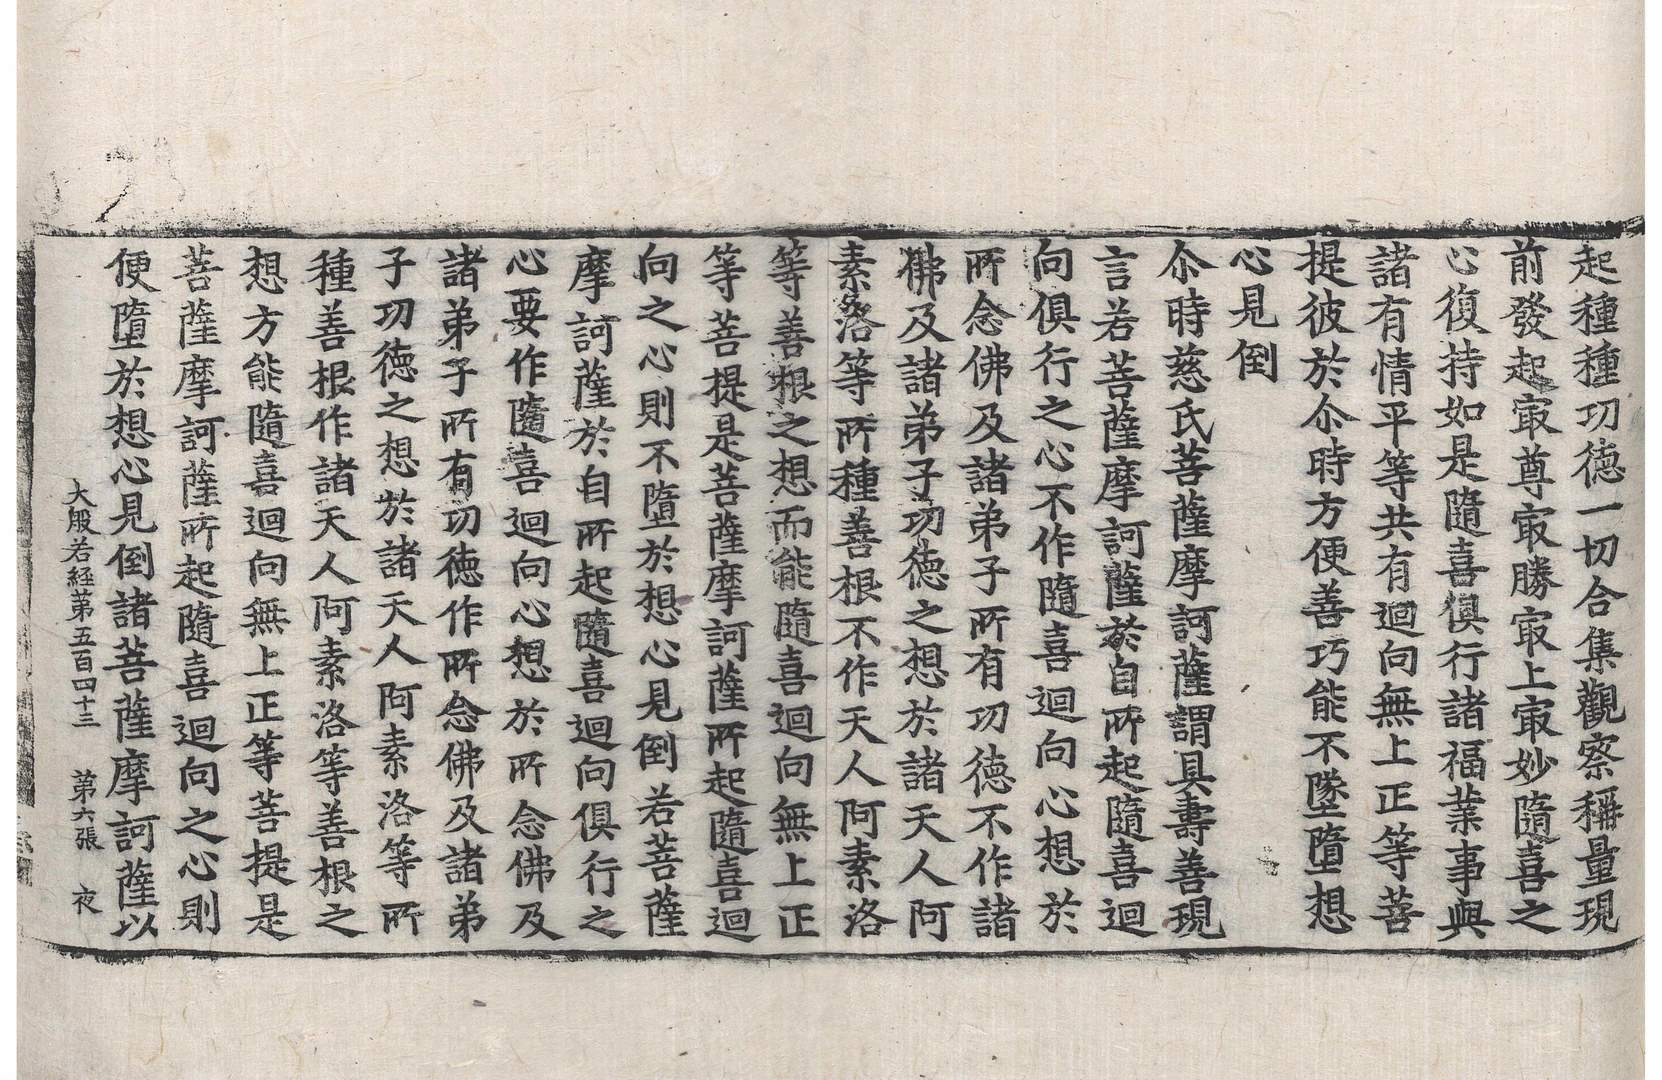 起種種功德一切合集觀察稱量現
前發起㝡尊㝡勝㝡上㝡妙隨喜之
心復持如是隨喜俱行諸福業事與
諸有情平等共有迴向無上正等菩
提彼於尒時方便善巧能不墜墮想
心見倒
尒時慈氏菩薩摩訶薩謂具壽善現
言若菩薩摩訶薩於自所起隨喜迴
向俱行之心不作隨喜迴向心想於
所念佛及諸弟子所有功德不作諸
佛及諸弟子功德之想於諸天人阿
素洛等所種善根不作天人阿素洛
等善根之想而能隨喜迴向無上正
等菩提是菩薩摩訶薩所起隨喜迴
向之心則不墮於想心見倒若菩薩
摩訶薩於自所起隨喜迴向俱行之
心要作隨喜迴向心想於所念佛及
諸弟子所有功德作所念佛及諸弟
子功德之想於諸天人阿素洛等所
種善根作諸天人阿素洛等善根之
想方能隨喜迴向無上正等菩提是
菩薩摩訶薩所起隨喜迴向之心則
便墮於想心見倒諸菩薩摩訶薩以
大般若経第五百四十三 第六張 夜